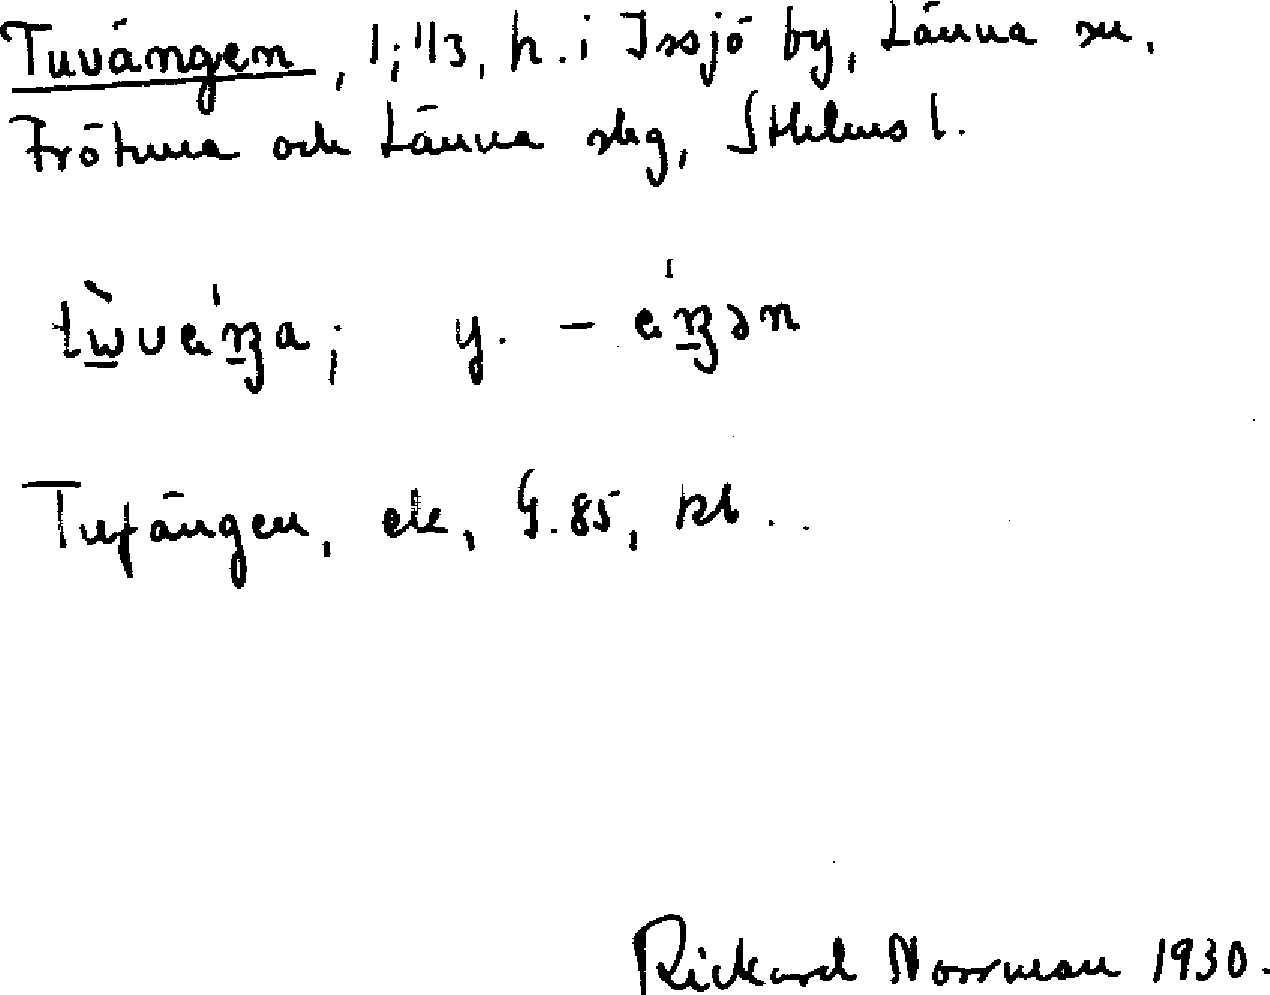 Tuvängen, 1; 1/3, h. i Issjö by, Länna sn,
Frötuna och Länna skg, Sthlms l.
tẁve'ŋa; y. - e'ŋən
Tufängen, ek, G. 85, kb..
Rickard Norrman 1930.